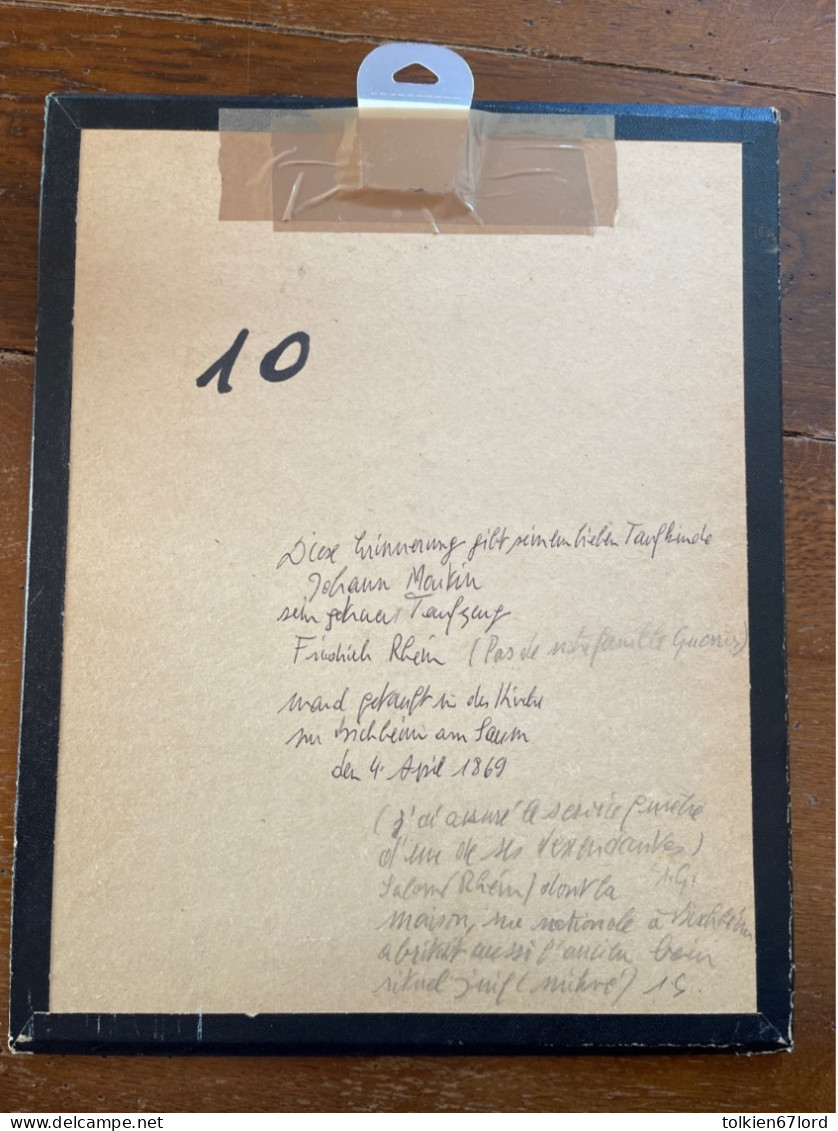 10
Diese Erinnerung gibt seinem lieben Taufkinde
Johann Martin
sein Taufzeug
Friedrich Rhein (Pas de notre famille)
ward getauft in der Kirche
zu Bischheim am Saum
den 4. April 1869
(j'ai assuré le service funèbre
d'une de ses descendantes)
Salomé (Rhein) dont la
maison, rue nationale à Bischheim
abritait aussi l'ancien bain
rituel juif (mikvé)
tolkien67lord